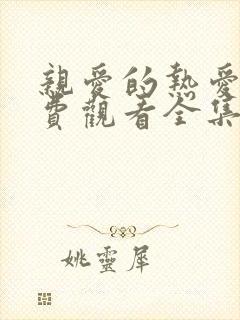 親愛的熱愛
費觀看全集
姚靈犀